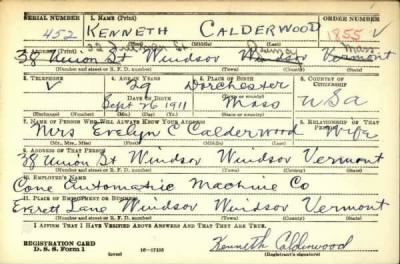 SERIAL NUMBER 1. NAME (Print) ORDER NUMBER
452 KENNETH CALDERWOOD 1855 V
(First) (Middle) (Last)
2. ADDRESS (Print) Quincy Mass
38 Union St Windsor Windsor Vermont
(Number and street or R. F. D. number) (Town) (County) (State)
3. TELEPHONE 4. AGE IN YEARS 5. PLACE OF BIRTH 6. COUNTRY OF CITIZENSHIP
V 29 Dorchester
DATE OF BIRTH (Town or county)
Sept 26 1911 Mass USA
(Exchange) (Number) (Mo.) (Day) (Yr.) (State or country)
7. NAME OF PERSON WHO WILL ALWAYS KNOW YOUR ADDRESS 8. RELATIONSHIP OF THAT PERSON
Mrs Evelyn C Calderwood Wife
(Mr., Mrs., Miss) (First) (Middle) (Last)
9. ADDRESS OF THAT PERSON
38 Union St Windsor Windsor Vermont
(Number and street or R. F. D. number) (Town) (County) (State)
10. EMPLOYER'S NAME
Cone Automatic Machine Co
11. PLACE OF EMPLOYMENT OR BUSINESS
Everett Lane Windsor Windsor Vermont
(Number and street or R. F. D. number) (Town) (County) (State)
I AFFIRM THAT I HAVE VERIFIED ABOVE ANSWERS AND THAT THEY ARE TRUE.
REGISTRATION CARD
D. S. S. Form 1 (over) 16-17105 Kenneth Calderwood
(Registrant's signature)